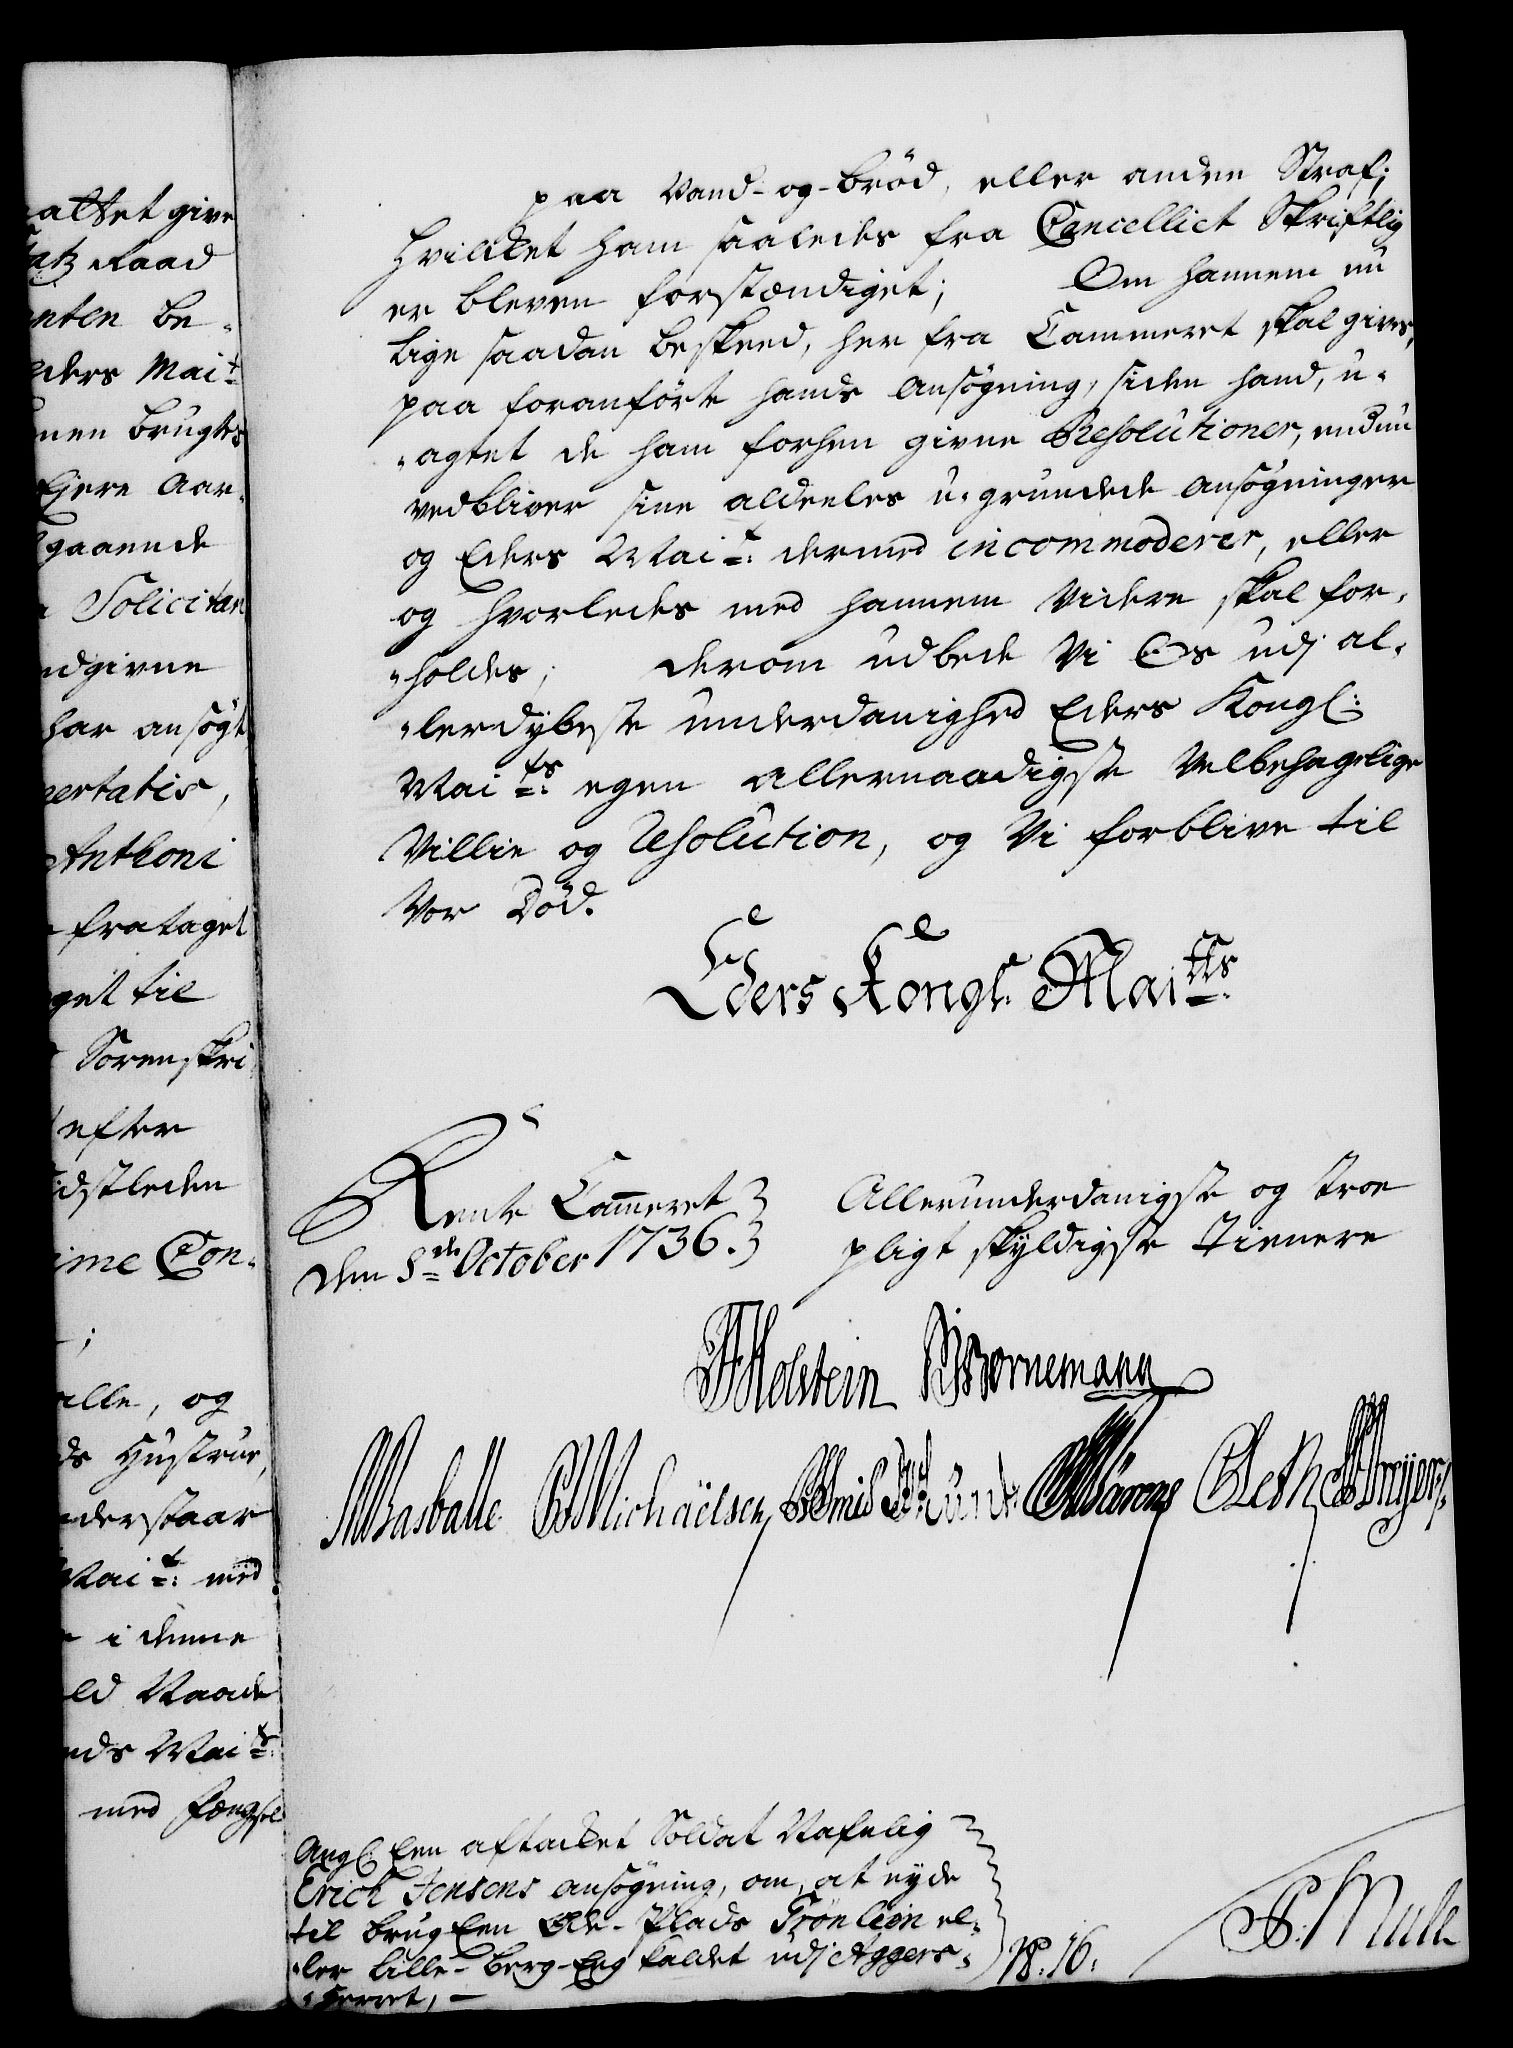 attet give
tatz Raad
nten be-
eders Mai.t
nen brugtes
Ejere Aar-
gaaende
Solicitan
ndgivne
har ansøgt
pertatis,
Anthoni
frataget
get til
Sorenskri
efter
idstleden
ime Con-
ille, og
ds Hustrue,
nderstaar
Mai.t: med
i denne
ld Naade
nds Mai.ts
med fængsel
paa Vand-og-brød, eller anden Straf;
hvilcket ham saaledes fra Cancelliet Skriftlig
er bleven forstændiget; Om hannem nu
lige saadan beskeed, her fra Cammeret skal gives,
paa foranførte hands Ansøgning, siden hand, u-
-agtet de ham forhen givne Resolutioner, endnu
vedbliver sine aldeeles u-grundede Ansøgninger
og Eders Mai.t: dermed incommoderer, eller
og hvorledes med hannem videre skal for-
-holdes; derom udbede Vi Os udj al-
-lerdybeste underdanighed Eders Kongl:
Mai.ts: egen Allernaadigste Velbehagelige
Villie og Resolution, og Vi forblive til
Vor Død.
Eders Kongl. Mai.tts
Rente Cammeret
den 8.de October 1736.
Allerunderdanigste og troe
pligt skyldigste tienere
Holstein Bornemann
Basballe Michaëlsen
Ang: Een aftacket Soldat Nafnlig
Erich Jensens ansøgning, om, at nyde
til brug Een Øde-Plads Grönlien el-
-ler Lille-Berg-Eng kaldet udj Aggers-
-herret, -
No. 16.